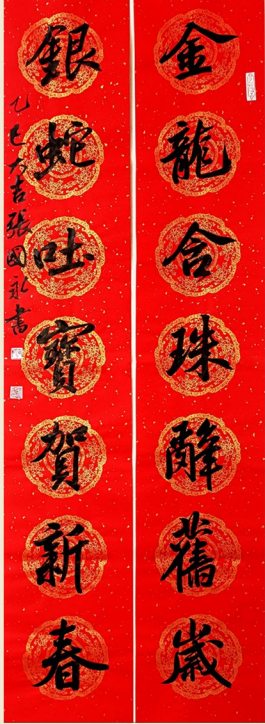 金龍含珠辭舊歲
銀蛇吐寶賀新春
乙巳大吉張國永書